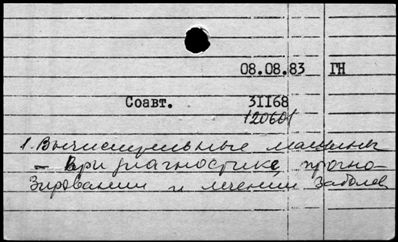 08.08.83 ГН
Соавт. 31168
120601
1. Вычислительные машины
— при диагностике, прогно-
зировании и лечении заболев